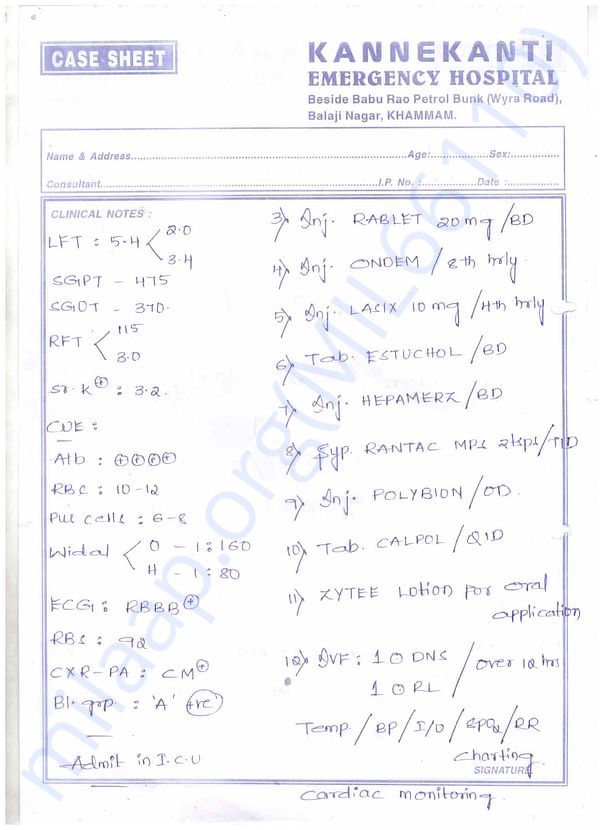 CASE SHEET
KANNEKANTI
EMERGENCY HOSPITAL
Beside Babu Rao Petrol Bunk (Wyra Road),
Balaji Nagar, KHAMMAM.
Name & Address............Age:............Sex:............
Consultant............I.P. No. :............Date :............
CLINICAL NOTES :
LFT : 5.4 < 2.0
3.4
SGPT - 475
SGOT - 370.
RFT < 115
3.0
Sr. K⊕ : 3.2.
CUE :
Alb : ⊕⊕⊕⊕
RBC : 10-12
Pus cells : 6-8
Widal < O - 1:160
H - 1:80
ECG : RBBB⊕
RBS : 92
CXR-PA : CM⊕
Bl. grp : 'A' +ve
Admit in I.C.U
3) Inj. RABLET 20mg/BD
4) Inj. ONDEM / 8th hrly.
5) Inj. LASIX 10mg /4th hrly
6) Tab. ESTUCHOL /BD
7) Inj. HEPAMERZ /BD
8) Syp. RANTAC MPS 2tsps/TID
9) Inj. POLYBION /OD.
10) Tab. CALPOL /QID
11) ZYTEE Lotion for oral
application
12) IVF : 1 O DNS / over 12 hrs
1 O RL
Temp / BP / I/O / SPO2 / RR
charting
SIGNATURE
cardiac monitoring.
milaap.org(MIL661110)